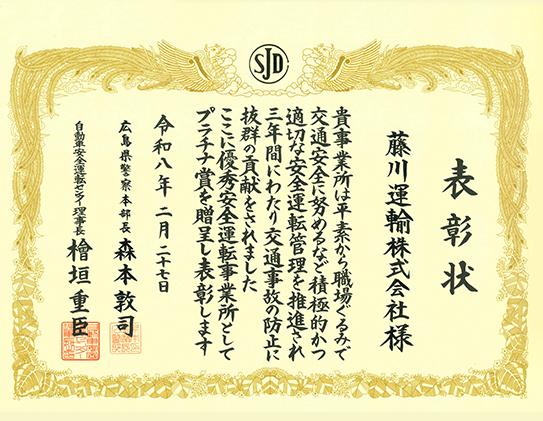 SJD
表彰状
藤川運輸株式会社様
貴事業所は平素から職場ぐるみで
交通安全に努めるなど積極的かつ
適切な安全運転管理を推進され
三年間にわたり交通事故の防止に
抜群の貢献をされました
ここに優秀安全運転事業所として
プラチナ賞を贈呈し表彰します
令和八年二月二十七日
広島県警察本部長 森本敦司
自動車安全運転センター理事長 檜垣重臣